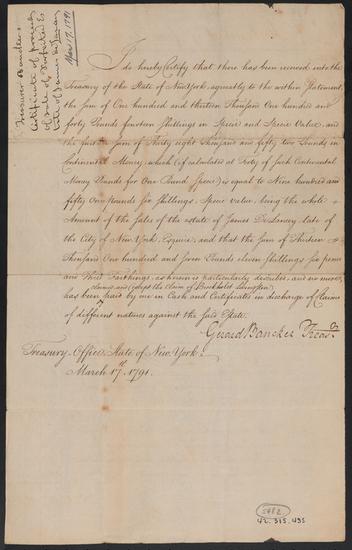 Treasurer Bancker's
Certificate of proceeds
of sale of Forfeited Es
tate of James DeLancey
Mar. 17, 1791
I do hereby Certify that there has been received into the
Treasury of the State of New York, agreeably to the within Statement,
the sum of One hundred and thirteen Thousand One hundred and
forty Pounds fourteen Shillings in Specie and Specie Value, and
the further Sum of Thirty eight Thousand and fifty two Pounds in
Continental Money, which (if calculated at Forty of such Continental
Money Pounds for One Pound Specie) is equal to Nine hundred and
fifty One pounds six Shillings, Specie value, being the whole
Amount of the Sales of the estate of James DeLancey late of
the City of New York, Esquire, and that the Sum of Thirteen
Thousand One hundred and four Pounds eleven Shillings six pence
and Three Farthings, as herein is particularly described, and no more,
Claims and (except the Claim of Brockholst Livingston)
has been paid by me in Cash and Certificates in discharge of Claims
of different natures against the said Estate.
Gerard Bancker Treasr.
Treasury-Office, State of New York:
March 17th 1791.
42.315.435